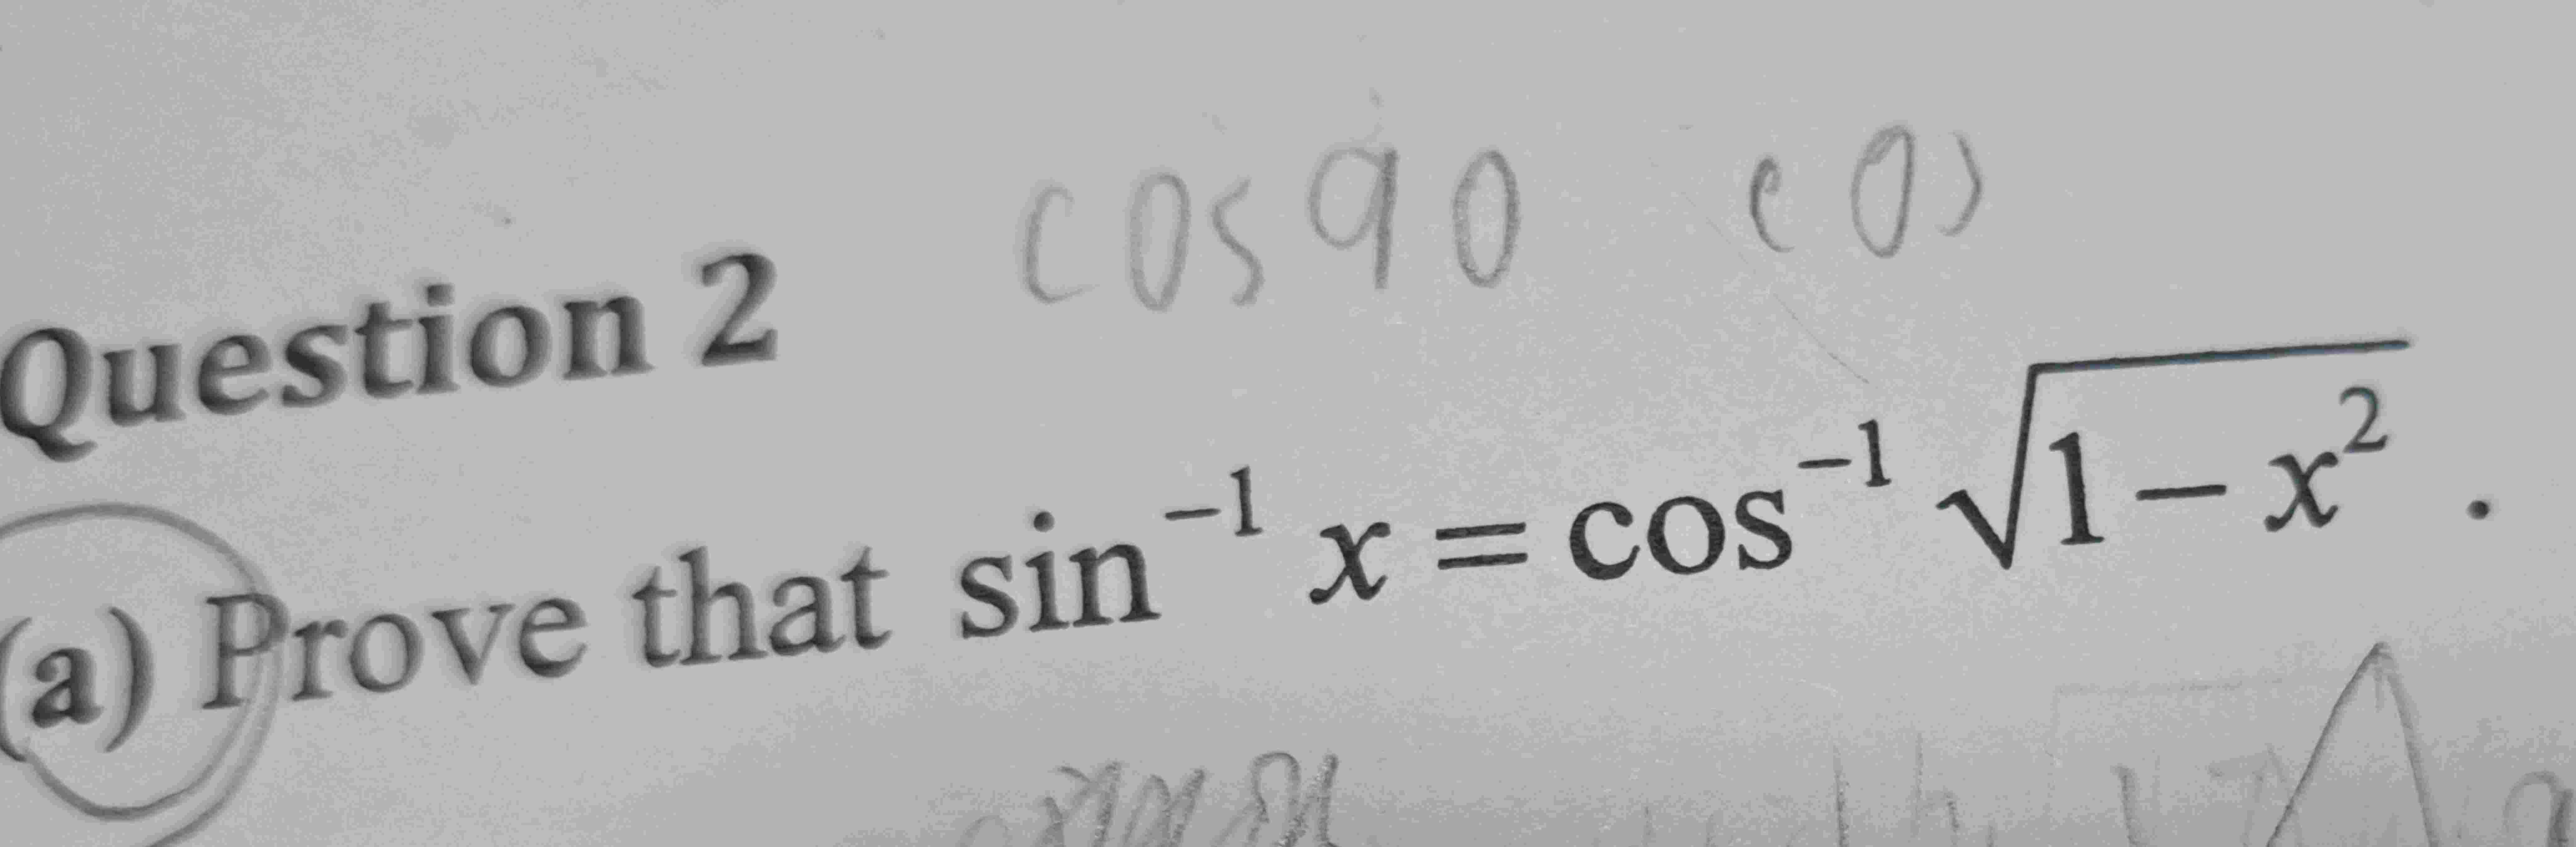 cos 90 cos
Question 2
(a) Prove that sin⁻¹ x = cos⁻¹ √(1 − x²) .